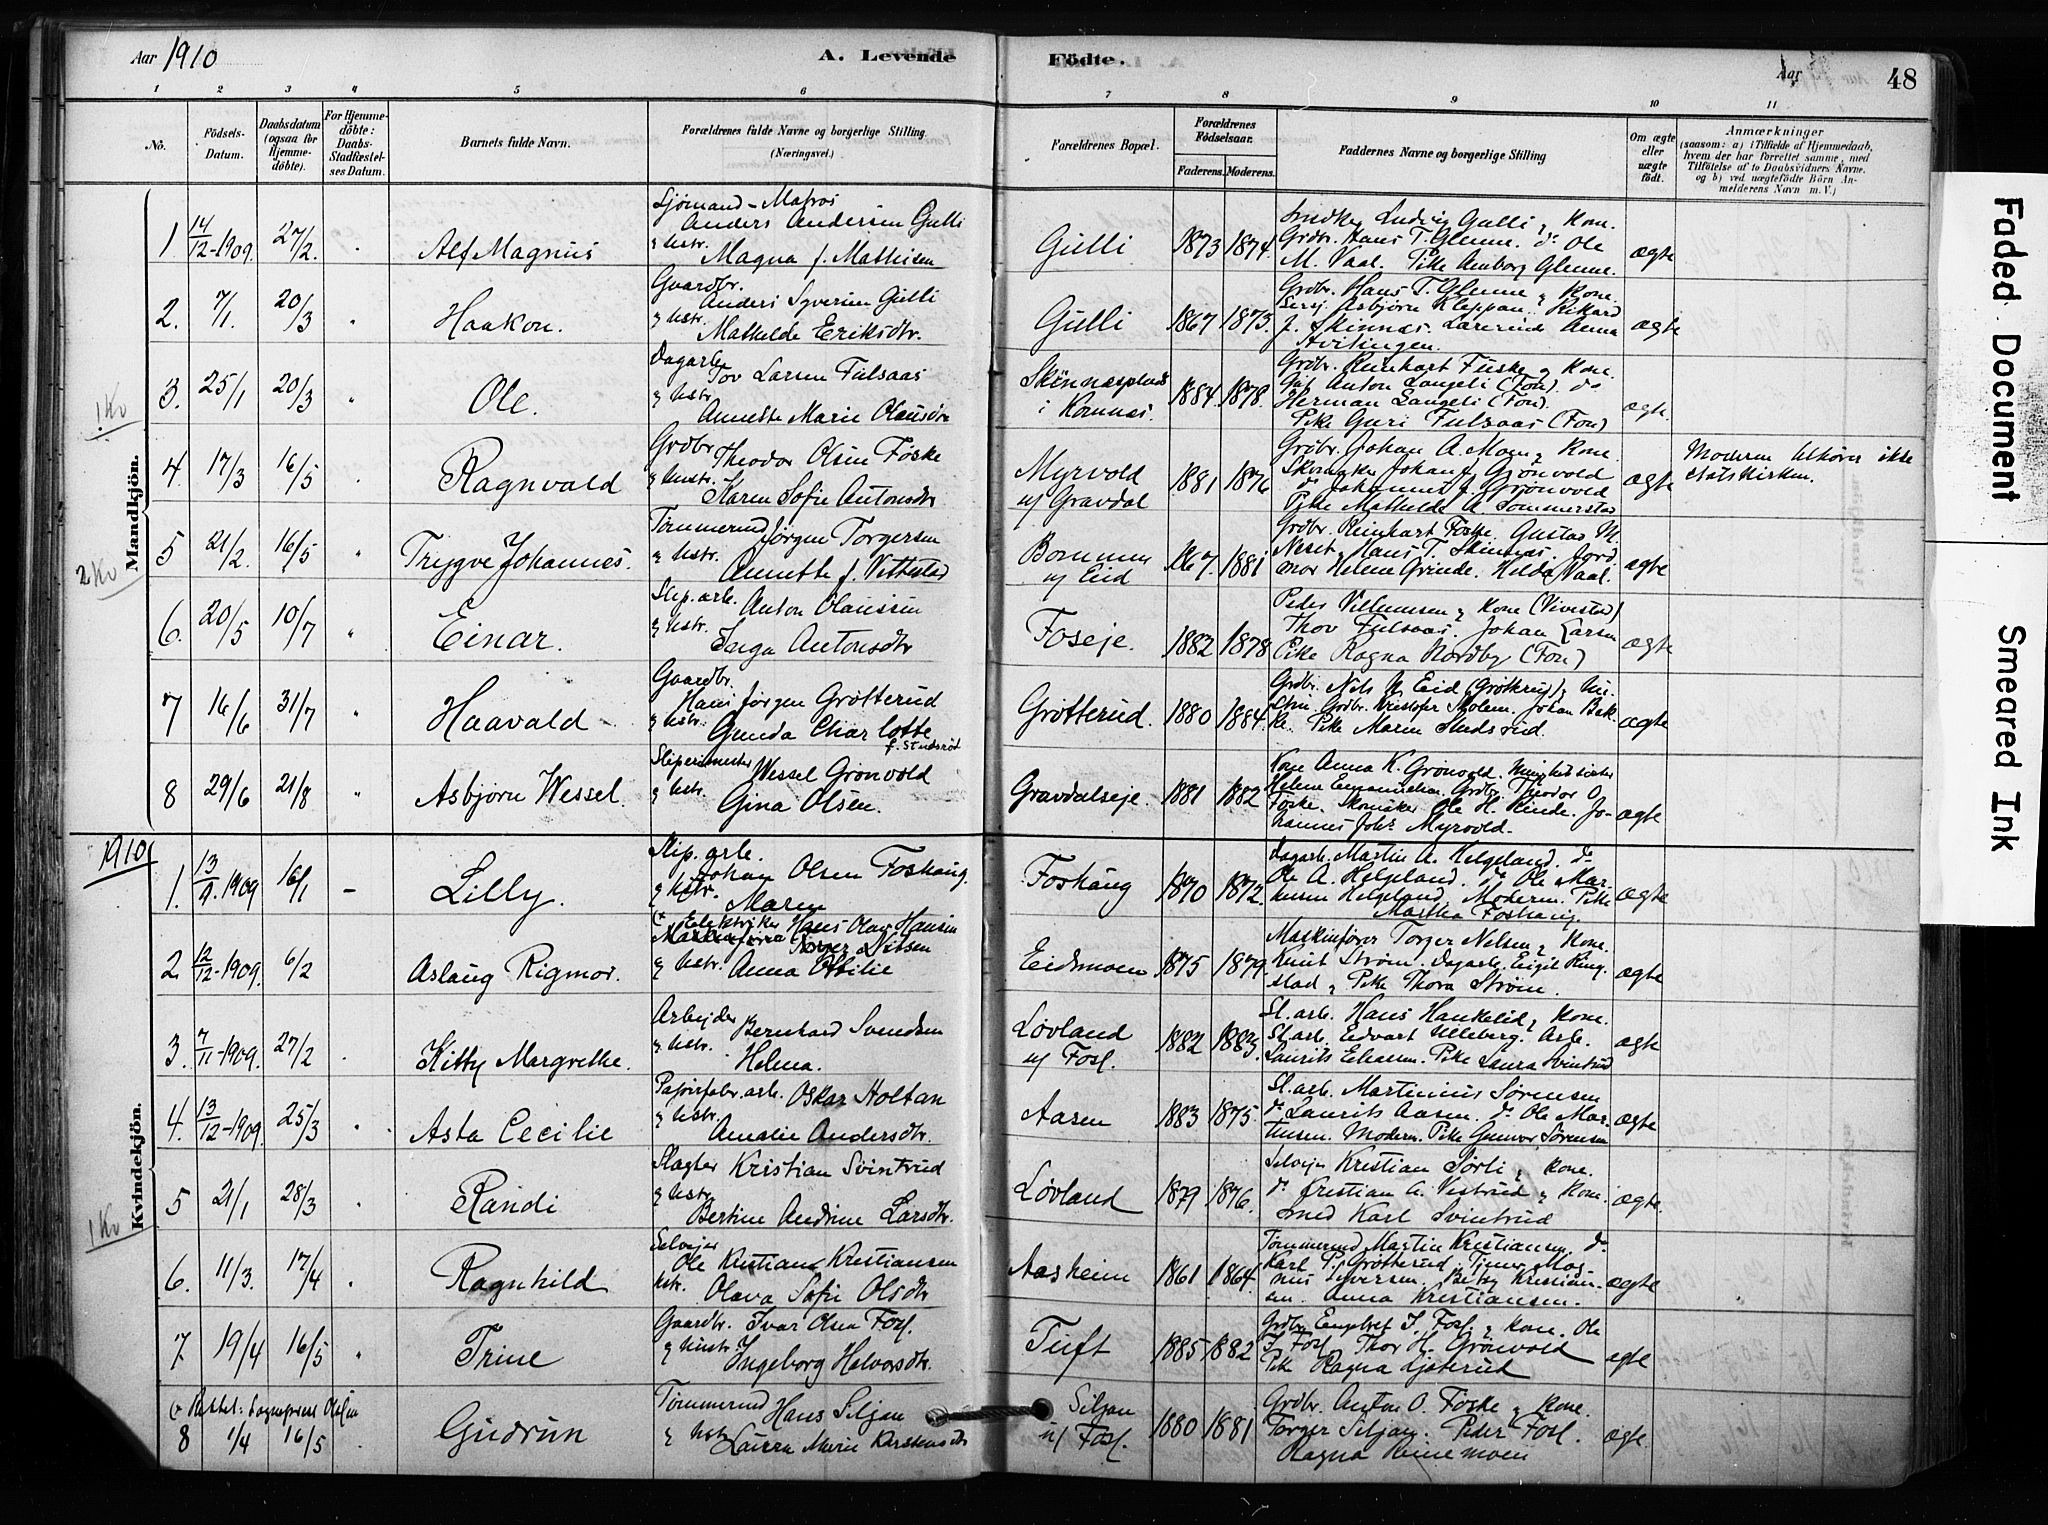 Aar 1910
A. Levende
Födte.
Aar
48
1 2 3 4 5 6 7 8 9 10 11
No.
Födsels-Datum.
Daabsdatum (ogsaa for Hjemme-döbte).
For Hjemme-döbte: Daabs-Stadfæstel-ses Datum.
Barnets fulde Navn.
Forældrenes fulde Navne og borgerlige Stilling. (Næringsvei.)
Forældrenes Bopæl.
Forældrenes Födselsaar.
Faderens. Moderens.
Faddernes Navne og borgerlige Stilling
Om ægte eller uægte födt.
Anmærkninger
(saasom: a) i Tilfælde af Hjemmedaab,
hvem der har forrettet samme, med
Tilföielse af to Daabsvidners Navne.
og b) ved uægtefödte Börn An-
melderens Navn m. V.)
Mandkjön.
1 14/12-1909. 27/2. Alf Magnus
Sjømand - Matros
Anders Andersen Gulli
& hstr. Magna f. Mathisen
Gulli 1873 1874.
Ludvig Gulli & Kone.
Grdbr. Hans T. Glenne. do Ole
M. Vaal. Pike Amborg Glenne.
ægte
2. 7/1. 20/3 Haakon.
Gaardbr.
Anders Syversen Gulli
& hstr. Mathilde Eriksdtr.
Gulli 1867 1873.
Grdbr. Hans T. Glenne & Kone.
Asbjørn Kleppan. Rikard
J. Skinnes. Lærerinde Anna
ægte
1 Kv
3. 25/1 20/3 Ole.
Dagarb.
Tov Larsen Fulsaas
& hstr. Annette Marie Olausdtr
i Komnes. 1884. 1878.
Grdbr. Reinhart Füske & Kone.
Anton Langeli (Fon). do
Herman Langeli (Fon).
Pike Guri Fulsaas (Fon)
ægte.
4 17/3 16/5 Ragnvald
Grdbr. Theodor Olsen Føske
& hustr. Karen Sofie Antonsdtr
Myrvold u/ Gravdal 1881 1876
Grdbr. Johan A. Moen & Kone.
Skomaker Johan J. Grønvold
do Johannes J. Grønvold
Pike Mathilde A. Sommerstad
ægte
Moderen tilhører ikke
Statskirken.
2 Kv
5 21/2. 16/5 Trygve Johannes.
Tømmermd Jørgen Torgersen
& hstr. Annette f. Vittestad
Bommen u/ Eid 1867. 1881
Grdbr. Reinhart Foske. Gustav M.
Neset, Hans T. Skinnes. Jord
mor Helene Grinde. Helda Vaal.
ægte
6. 20/5 10/7 Einar.
Slip. arb. Anton Olaussen
& hstr. Inga Antonsdtr
Foseje. 1882 1878
Peder Villumsen & Kone (Vivestad)
Thov Fulsaas. Johan Larsen
Pike Ragna Nordby (Fon)
ægte
7 16/6 31/7 Haavald
Gaardbr.
Hans Jørgen Grøtterud
& hstr. Gunda Charlotte
f. Studsrød
Grøtterud. 1880 1884.
Grdbr. Nils N. Eid (Grøtterud) & hu-
stru. Grdbr. Kristofer Molem. Johan Bak-
ke. Pike Maren Studsrud.
ægte
8 29/6 21/8 Asbjørn Wessel.
Sliperimester Wessel Grønvold
& hstr. Gina Olsen.
Gravdalseje. 1881 1882
Kone Anna K. Grønvold.
Grdbr. Theodor O.
Føske. Skomaker Ole H. Rinde. Jo-
hannes Johs. Myrvold.
ægte
1910
Kvindekjön.
1. 13/9. 1909 16/1 - Lilly.
Slip. arb.
Johan Olsen Foshaug.
& hstr. Maren
Foshaug 1870 1872.
Dagarb. Martin A. Helgeland. do
Ole A. Helgeland. do Ole Mar-
tinsen Helgeland. Moderen. Pike
Martha Foshaug.
ægte
2 12/12-1909. 6/2 Aslaug Rigmor.
(x Elektriker Hans Olav Hansen
Maskinfører Torger Nilsen
& hstr. Anna Ottilie
Eidsmoen 1875 1879.
Maskinfører Torger Nelsen & Kone.
Knut Strøm. Dagarb. Eigil Ring-
stad & Pike Thora Strøm.
ægte
3. 7/11-1909. 27/2 Kitty Margrethe.
Arbejder Bernhard Svendsen
& hstr. Helena.
Løvland u/ Fosl. 1882 1883.
Sl. arb. Hans Haukelid & Kone.
Sl. arb. Edvart Ulleberg. Arb.
Laurits Eliasen. Pike Laura Svintrud
ægte
4. 13/12-1909. 25/3 Asta Cecilie
Papirfabr. arb. Oskar Holtan
& hstr. Amalie Andersdtr.
Aasen 1883 1875.
Sl. arb. Martinius Sørensen
do Laurits Aasen. do Ole Mar-
tinsen. Moderen. Pike Gunvor Sørensen
ægte
1 Kv
5 21/1 28/3 Randi
Slagter Kristian Svintrud
& hstr. Bertine Andrine Larsdtr.
Løvland 1879 1876.
Selvejer Kristian Sørli & Kone.
do Kristian A. Vestrud & Kone.
Smed Karl Svintrud
ægte.
6. 11/3. 17/4 Ragnhild
Selvejer
Ole Kristian Kristiansen
hstr. Olava Sofie Olsdtr
Aasheim 1861 1864.
Tømmermd Martin Kristiansen. do
Karl P. Grøtterud. Mag-
nus Syversen. Betsy Kristian-
sen. Anna Kristiansen.
ægte
7. 19/4 16/5 Trine
Gaardbr. Ivar Olsen Fosl.
& hustr. Ingeborg Halvorsdtr.
Tuft 1885 1882
Grdbr. Engebret I. Fosl & Kone. Ole
I. Fosl. Thor H. Grønvold
Pike Ragna Ljøterud
ægte
(x Rettet: Sogneprest Olsen
8 1/4 16/5 Gudrun
Tømmermd Hans Siljan
& hstr. Laura Marie Karstensdtr
Siljan u/ Fosl. 1880 1881
Grdbr. Anton O. Føske & Kone.
Torger Siljan. Peder Fosl.
Ragna Rinemoen
ægte
Faded Document
Smeared Ink